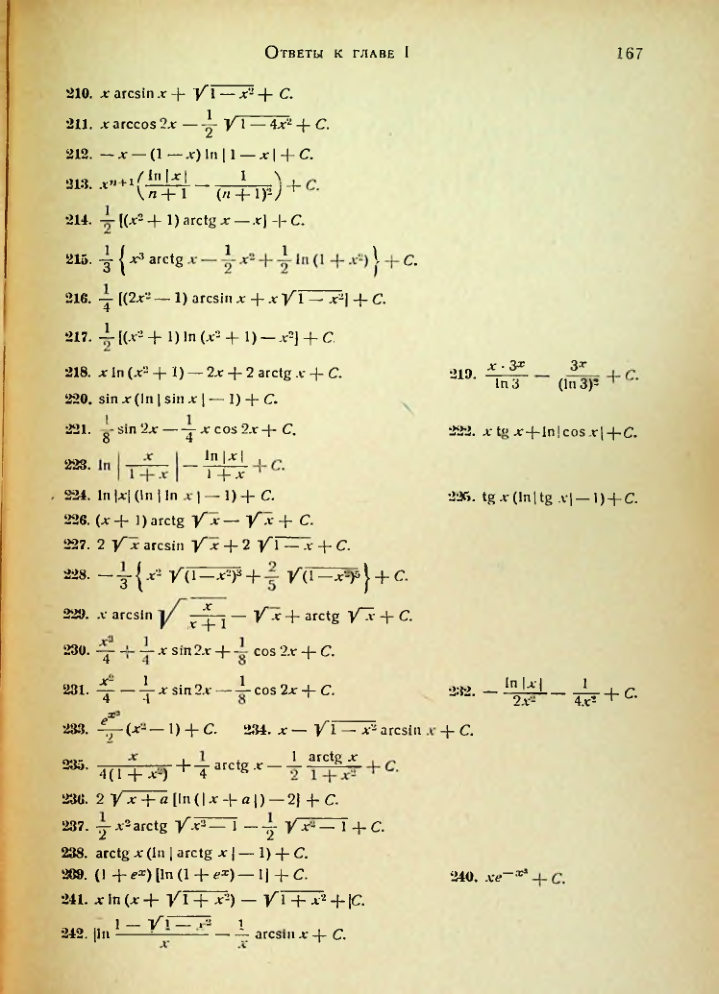 Ответы к главе I 167
210. x arcsin x + √(1 — x²) + C.
211. x arccos 2x — 1/2 √(1 — 4x²) + C.
212. — x — (1 — x) ln | 1 — x | + C.
213. xⁿ⁺¹ (ln |x| / (n + 1) — 1 / (n + 1)²) + C.
214. 1/2 [(x² + 1) arctg x — x] + C.
215. 1/3 { x³ arctg x — 1/2 x² + 1/2 ln (1 + x²) } + C.
216. 1/4 [(2x² — 1) arcsin x + x √(1 — x²)] + C.
217. 1/2 [(x² + 1) ln (x² + 1) — x²] + C
218. x ln (x² + 1) — 2x + 2 arctg x + C. 219. x · 3ˣ / ln 3 — 3ˣ / (ln 3)² + C.
220. sin x (ln | sin x | — 1) + C.
221. 1/8 sin 2x — 1/4 x cos 2x + C. 222. x tg x + ln | cos x | + C.
223. ln | x / (1 + x) | — ln |x| / (1 + x) + C.
224. ln |x| (ln | ln x | — 1) + C. 225. tg x (ln | tg x | — 1) + C.
226. (x + 1) arctg √x — √x + C.
227. 2 √x arcsin √x + 2 √(1 — x) + C.
228. — 1/3 { x² √((1—x²)³) + 2/5 √((1—x²)⁵) } + C.
229. x arcsin √(x / (x + 1)) — √x + arctg √x + C.
230. x²/4 + 1/4 x sin 2x + 1/8 cos 2x + C.
231. x²/4 — 1/4 x sin 2x — 1/8 cos 2x + C. 232. — ln |x| / 2x² — 1 / 4x² + C.
233. e^(x²)/2 (x² — 1) + C. 234. x — √(1 — x²) arcsin x + C.
235. x / 4(1 + x²) + 1/4 arctg x — 1/2 arctg x / (1 + x²) + C.
236. 2 √(x + a) [ln (| x + a |) — 2] + C.
237. 1/2 x² arctg √(x² — 1) — 1/2 √(x² — 1) + C.
238. arctg x (ln | arctg x | — 1) + C.
239. (1 + eˣ) [ln (1 + eˣ) — 1] + C. 240. xe^(—x²) + C.
241. x ln (x + √(1 + x²)) — √(1 + x²) + C.
242. ln (1 — √(1 — x²)) / x — 1/x arcsin x + C.